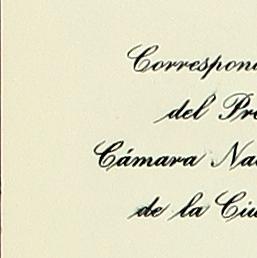 Correspon
del Pr
Cámara Na
de la Ciu